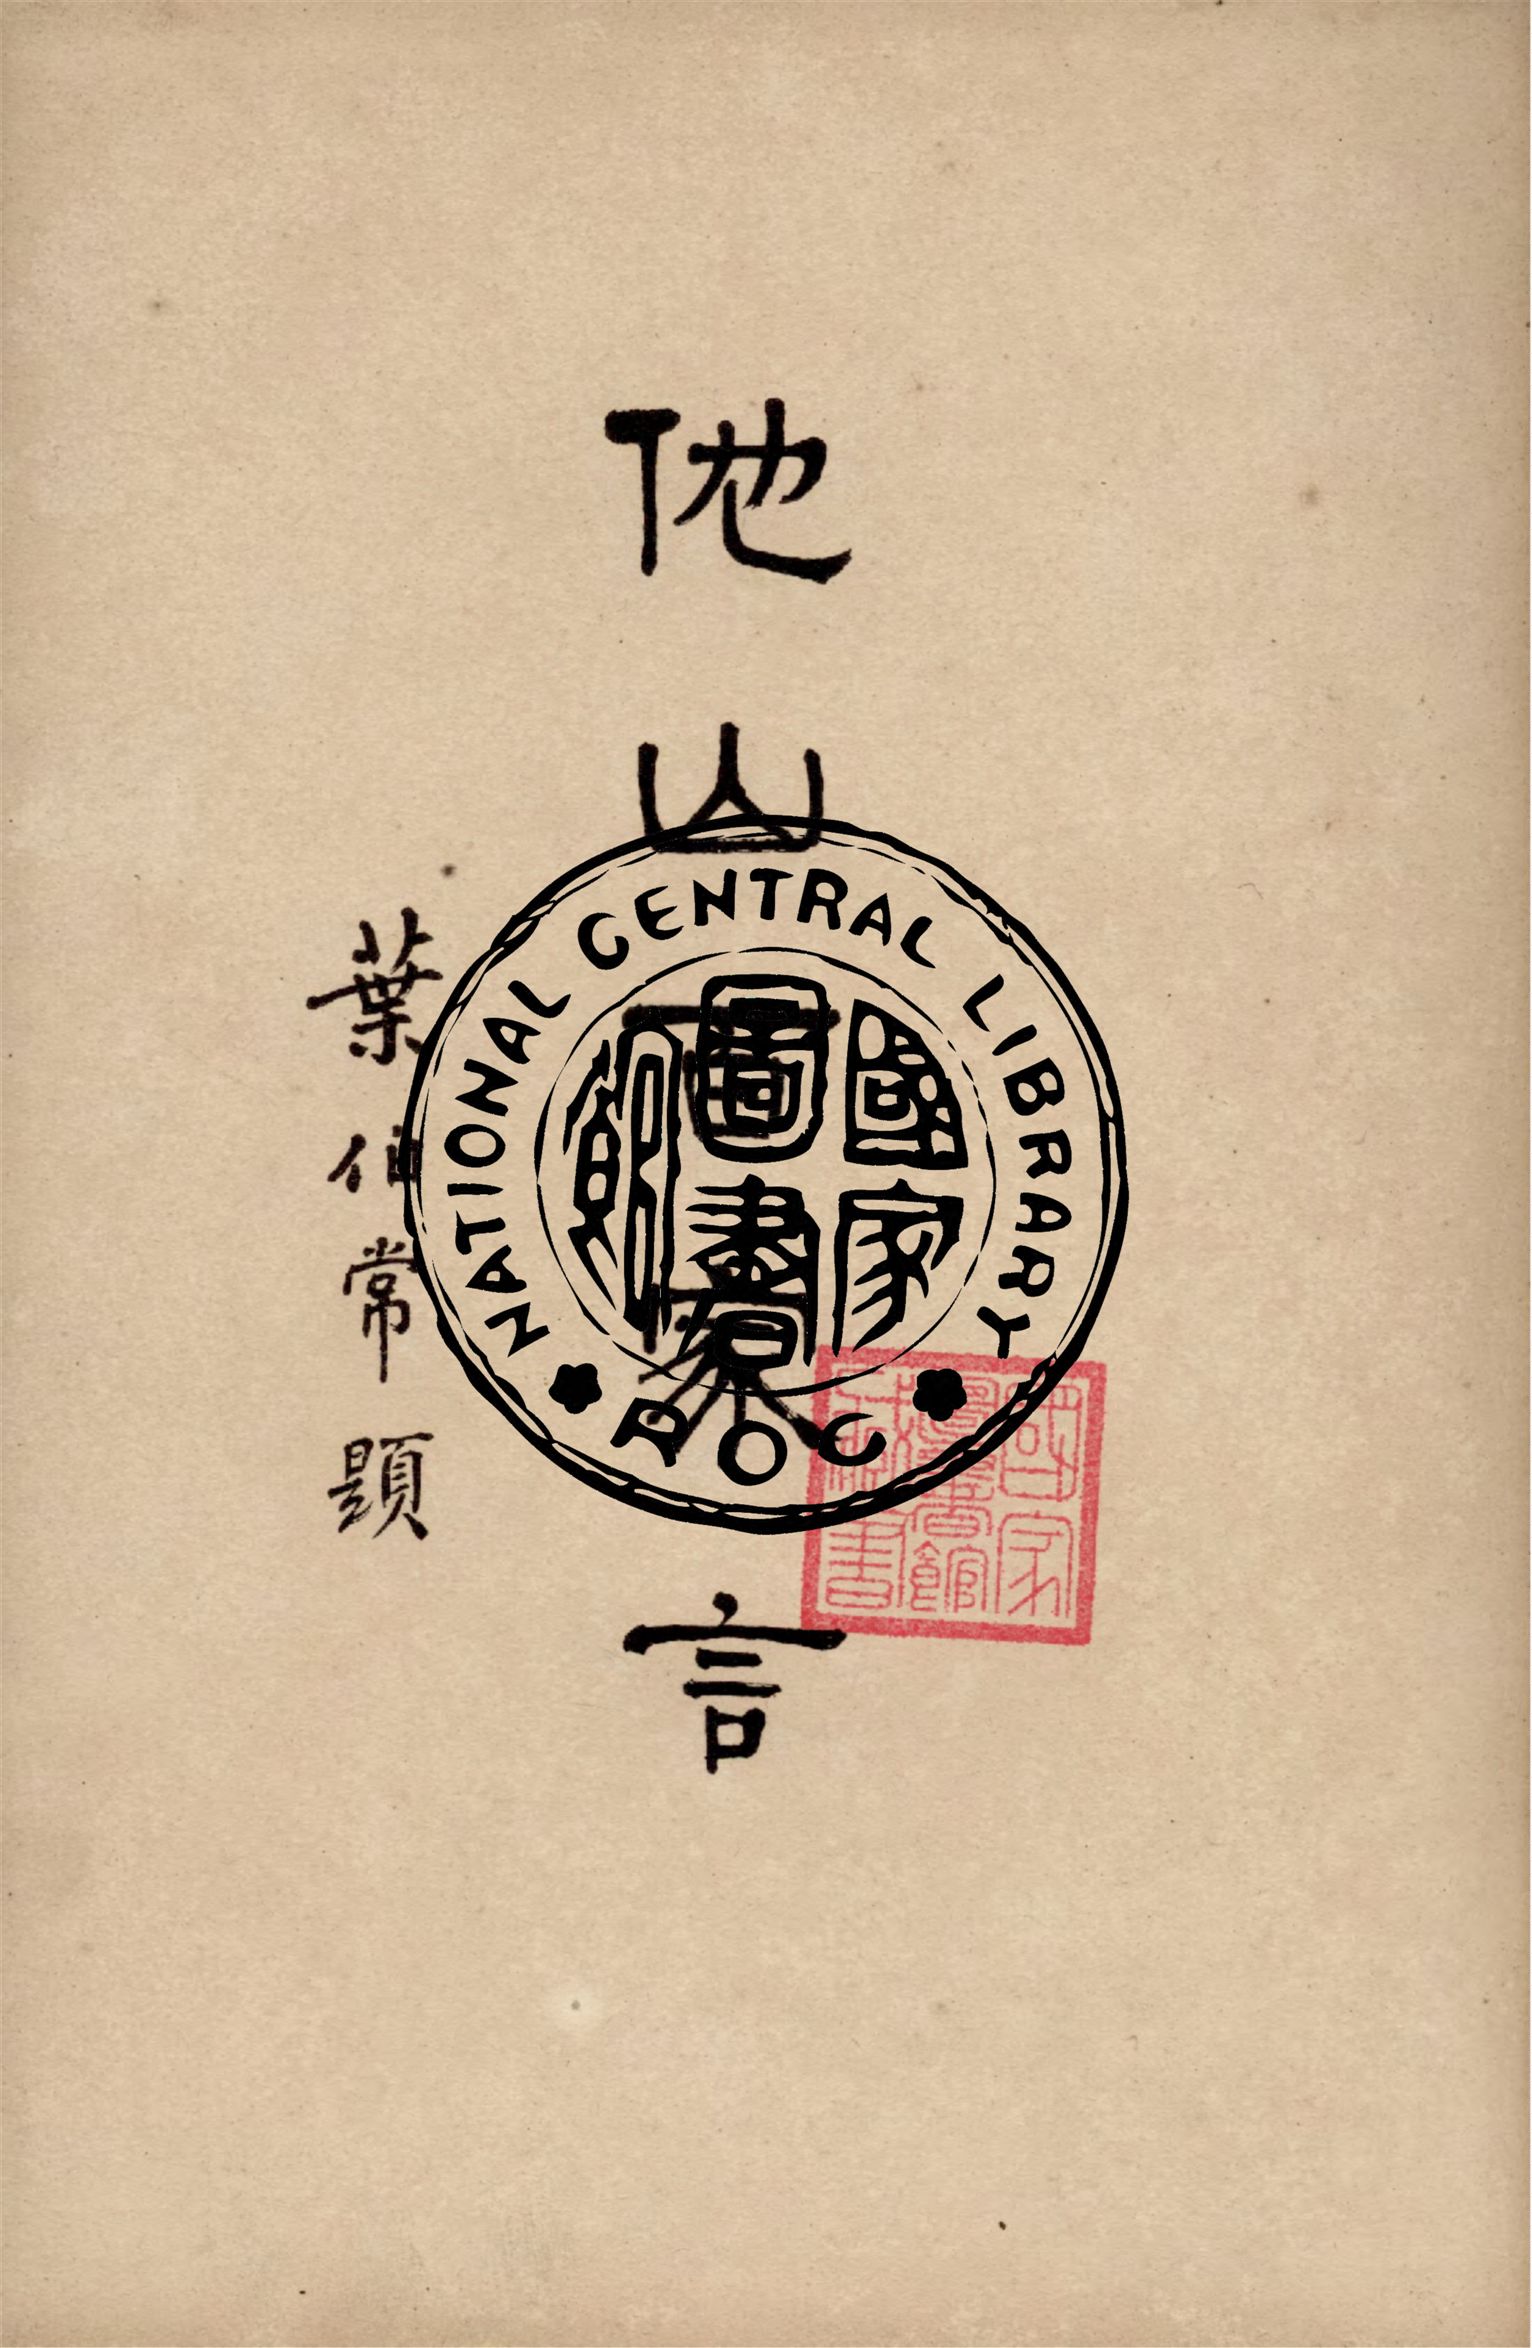 他山百家言
葉伯常題
NATIONAL CENTRAL LIBRARY
國家
圖書
館
ROC
國家
圖書館
藏書